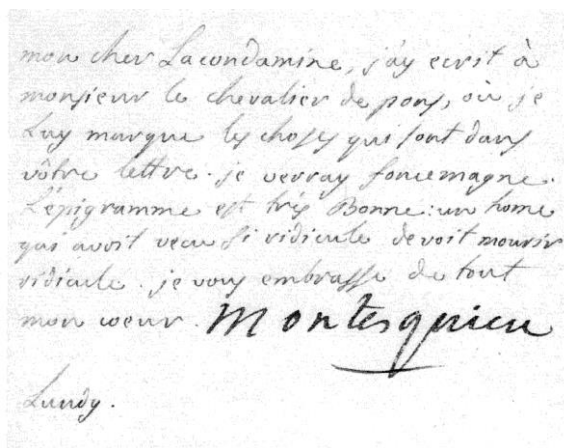 mon cher Lacondamine, j'ay ecrit à
monsieur le chevalier de pons, où je
Luy marque les choses qui sont dans
vôtre lettre. je verray foncemagne.
L'épigramme est très Bonne: un home
qui avoit vecu si ridicule devoit mourir
ridicule. je vous embrasse de tout
mon coeur. Montesquieu
Lundy.